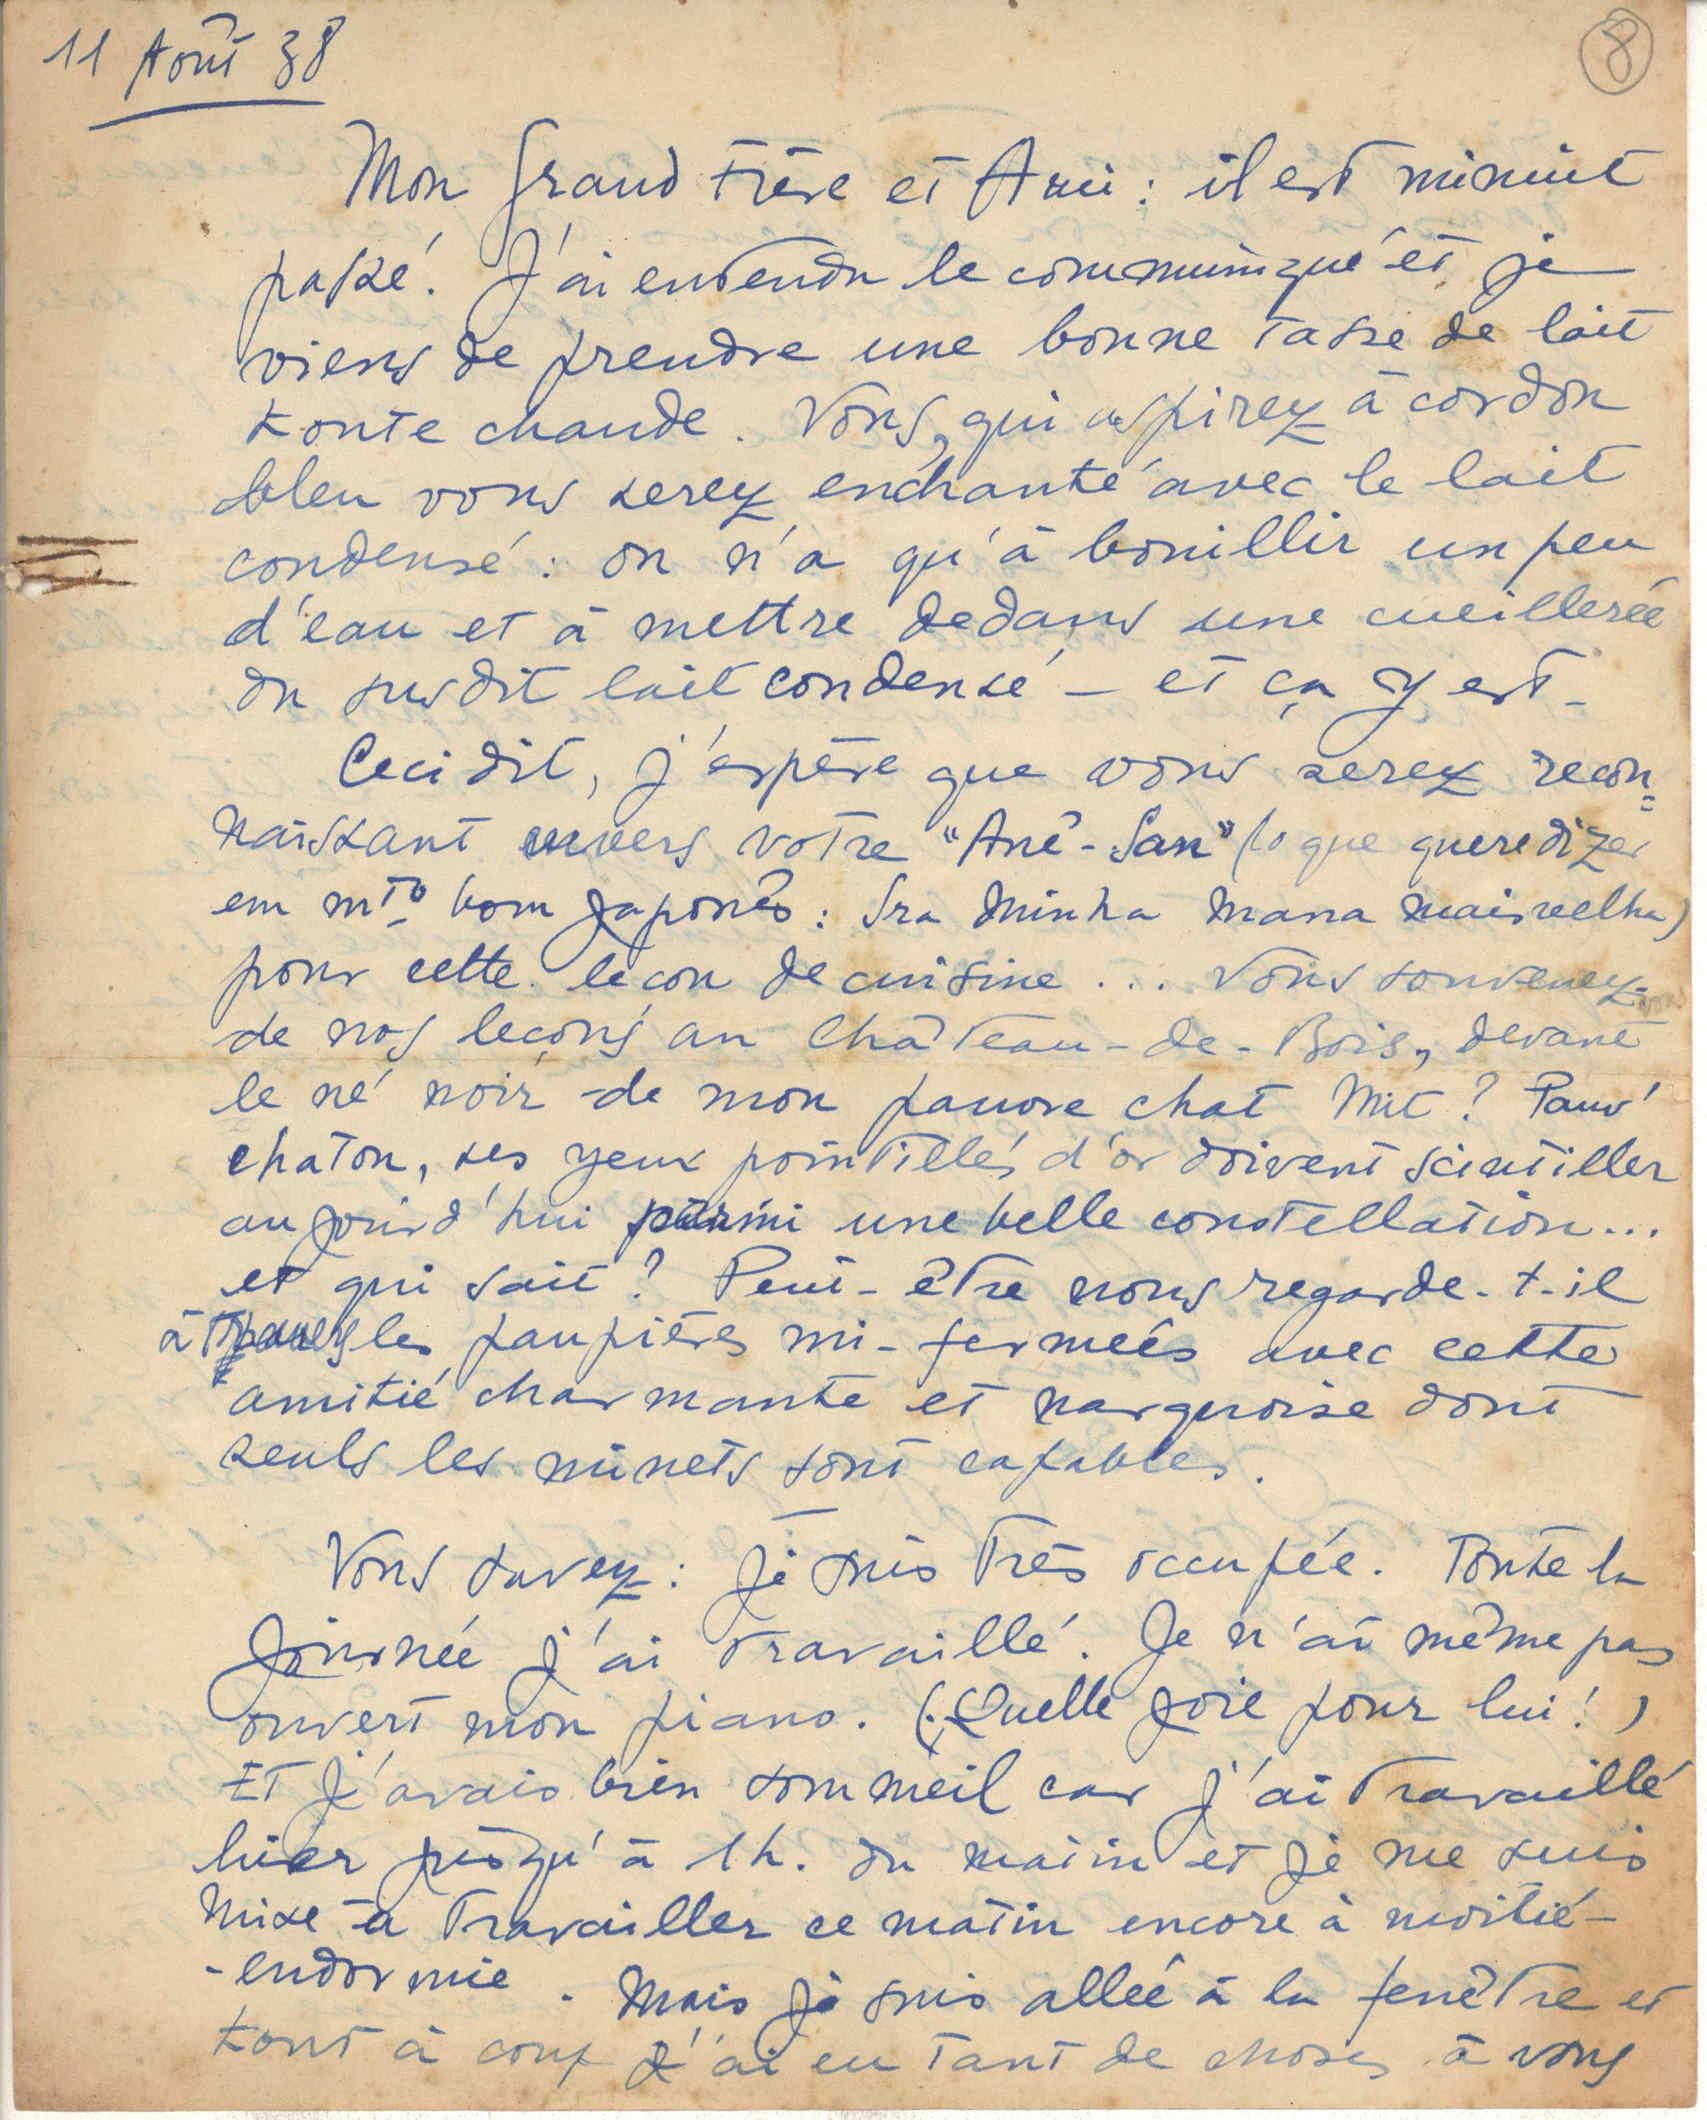 11 Août 38
8
Mon Grand Frère et Ami : il est minuit
passé. J'ai entendu le communiqué et je
viens de prendre une bonne tasse de lait
toute chaude. Vous, qui aspirez à cordon
bleu vous serez enchanté avec le lait
condensé : on n'a qu'à bouillir un peu
d'eau et à mettre dedans une cueillerée
du susdit lait condensé – et ça y est –
Ceci dit, j'espère que vous serez recon=
naissant envers votre "Anê-San" (o que quere dizer
em mto bom Japonês : Sra Minha Mana mais velha)
pour cette leçon de cuisine ... Vous souvenez-vous
de nos leçons au Château-de-Bois, devant
le né noir de mon pauvre chat Mit ? Pauv'
chaton, ses yeux pointillés d'or doivent scintiller
aujourd'hui parmi une belle constellation...
et qui sait ? Peut-être nous regarde-t-il
à travers les paupières mi-fermées avec cette
amitié charmante et narquoise dont
seuls les minets sont capables.
Vous savez : je suis très occupée. Toute la
Journée j'ai travaillé. Je n'ai même pas
ouvert mon piano. (Quelle joie pour lui !)
Et j'avais bien sommeil car j'ai travaillé
hier jusqu'à 1h. du matin et je me suis
mise à travailler ce matin encore à moitié-
-endormie. Mais je suis allée à la fenêtre et
tout à coup j'ai eu tant de choses à vous